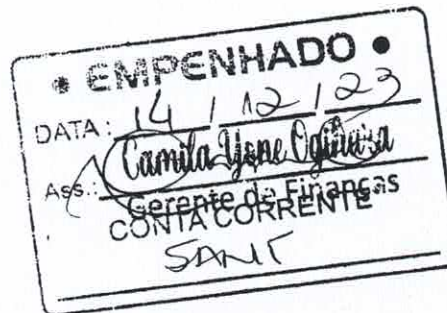 • EMPENHADO •
DATA: 14 / 12 / 23
Camila Yone
Ass.:
Gerente de Finanças
CONTA CORRENTE